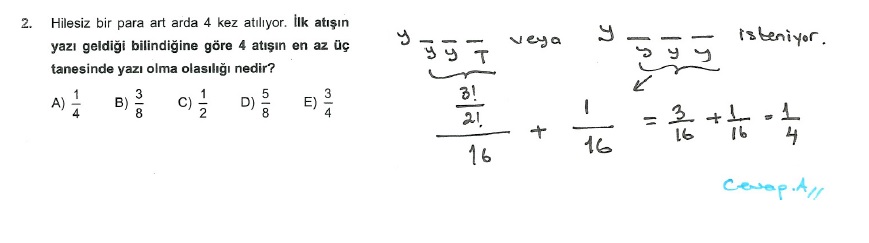 2. Hilesiz bir para art arda 4 kez atılıyor. İlk atışın
yazı geldiği bilindiğine göre 4 atışın en az üç
tanesinde yazı olma olasılığı nedir?
A) 1/4 B) 3/8 C) 1/2 D) 5/8 E) 3/4
y y y T veya y y y y isteniyor.
3!/2!/16 + 1/16 = 3/16 + 1/16 = 1/4
Cevap.A//